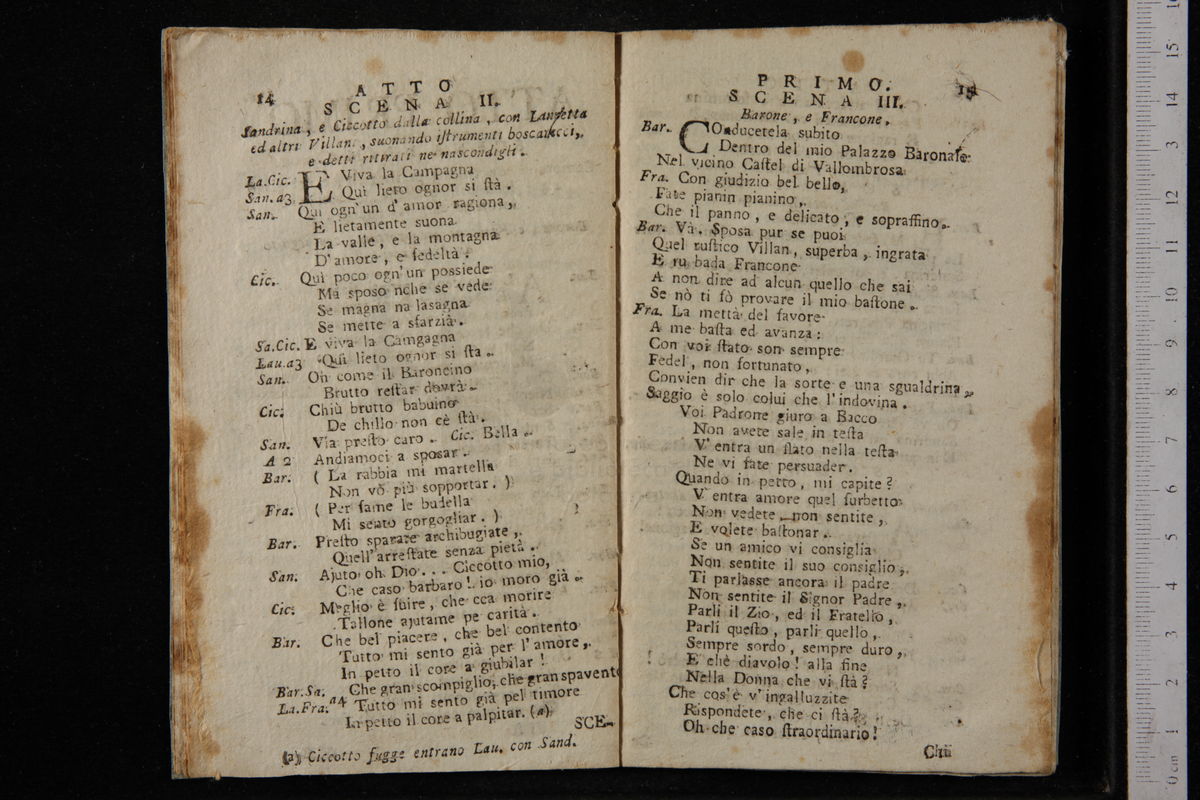 14
ATTO
SCENA II.
Sandrina, e Ciccotto dalla collina, con Lauretta
ed altri Villani, suonando iſtrumenti boscarecci,
e detti ritirati ne nascondigli.
La.Cic. E Viva la Campagna
San. a3 Quì lieto ognor si ſtà.
San. Quì ogn'un d'amor ragiona,
E lietamente suona
La valle, e la montagna
D'amore, e fedeltà.
Cic. Quì poco ogn'un possiede
Ma sposo nche se vede
Se magna na lasagna
Se mette a sfarzià.
Sa.Cic. E viva la Camgagna
Lau.a3 Quì lieto ognor si ſta.
San. Oh come il Baroncino
Brutto reſtar dovrà.
Cic. Chiù brutto babuino
De chillo non cè ſtà.
San. Via preſto caro. Cic. Bella.
A 2 Andiamoci a sposar.
Bar. (La rabbia mi martella
Non vò più sopportar.)
Fra. (Per fame le budella
Mi sento gorgogliar.)
Bar. Preſto sparate archibugiate,
Quell'arreſtate senza pietà.
San. Ajuto oh Dio... Ciccotto mio,
Che caso barbaro! io moro già.
Cic. Meglio è fuire, che cca morire
Tallone ajutame pe carità.
Bar. Che bel piacere, che bel contento
Tutto mi sento già per l'amore,
In petto il core a giubilar!
Bar.Sa. Che gran scompiglio, che gran spavento
La.Fra. a4 Tutto mi sento già pel timore
In petto il core a palpitar. (a)
SCE-
(a) Ciccotto fugge entrano Lau. con Sand.
PRIMO. 15
SCENA III.
Barone, e Francone.
Bar. COnducetela subito
Dentro del mio Palazzo Baronale
Nel vicino Caſtel di Vallombrosa
Fra. Con giudizio bel bello,
Fate pianin pianino,
Che il panno, e delicato, e sopraffino.
Bar. Và. Sposa pur se puoi
Quel ruſtico Villan, superba, ingrata
E tu bada Francone
A non dire ad alcun quello che sai
Se nò ti fò provare il mio baſtone.
Fra. La mettà del favore
A me baſta ed avanza:
Con voi ſtato son sempre
Fedel, non fortunato,
Convien dir che la sorte e una sgualdrina,
Saggio è solo colui che l'indovina.
Voi Padrone giuro a Bacco
Non avete sale in teſta
V'entra un ſlato nella teſta
Ne vi fate persuader.
Quando in petto, mi capite?
V'entra amore quel furbetto
Non vedete, non sentite,
E volete baſtonar.
Se un amico vi consiglia
Non sentite il suo consiglio,
Ti parlasse ancora il padre
Non sentite il Signor Padre,
Parli il Zio, ed il Fratello,
Parli queſto, parli quello,
Sempre sordo, sempre duro,
E chè diavolo! alla fine
Nella Donna che vi ſtà?
Che cos'è v'ingalluzzite
Rispondete, che ci ſtà?
Oh che caso ſtraordinario!
Chi